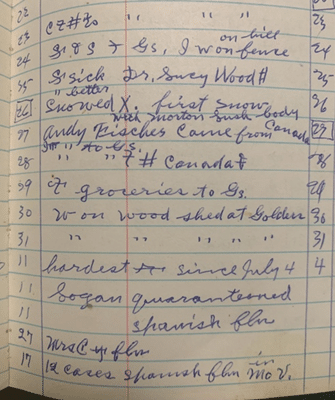 22 " " "
23 to " " " 23
24 G & S & Gs, I w on fence on hill 24
25 G sick Dr. Lucy Wood 25
" better
26 Snowed X. first snow 26
with Morton Sush body
27 Andy Fisches came from Canada 27
to Gs.
28 " " Canada 28
29 groceries to Gs. 29
30 w on wood shed at Golden 30
31 " " " " " 31
11 hardest since July 4 4
11 Logan quarantened
11 spanish flu
27 Mrs C flu
17 12 cases spanish flu in Mo V.